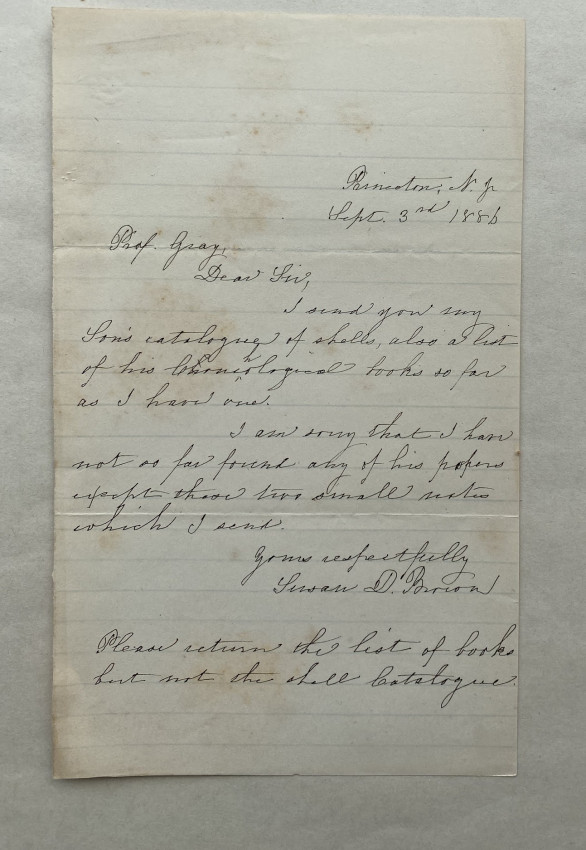 Princeton, N. J.
Sept. 3rd 1886
Prof. Gray,
Dear Sir,
I send you my
Son's catalogue of shells, also a list
of his books so far
as I have one.
I am sorry that I have
not so far found any of his papers
except these two small notes
which I send.
Yours respectfully
Susan D. Brown
Please return the list of books
but not the shell Catalogue.